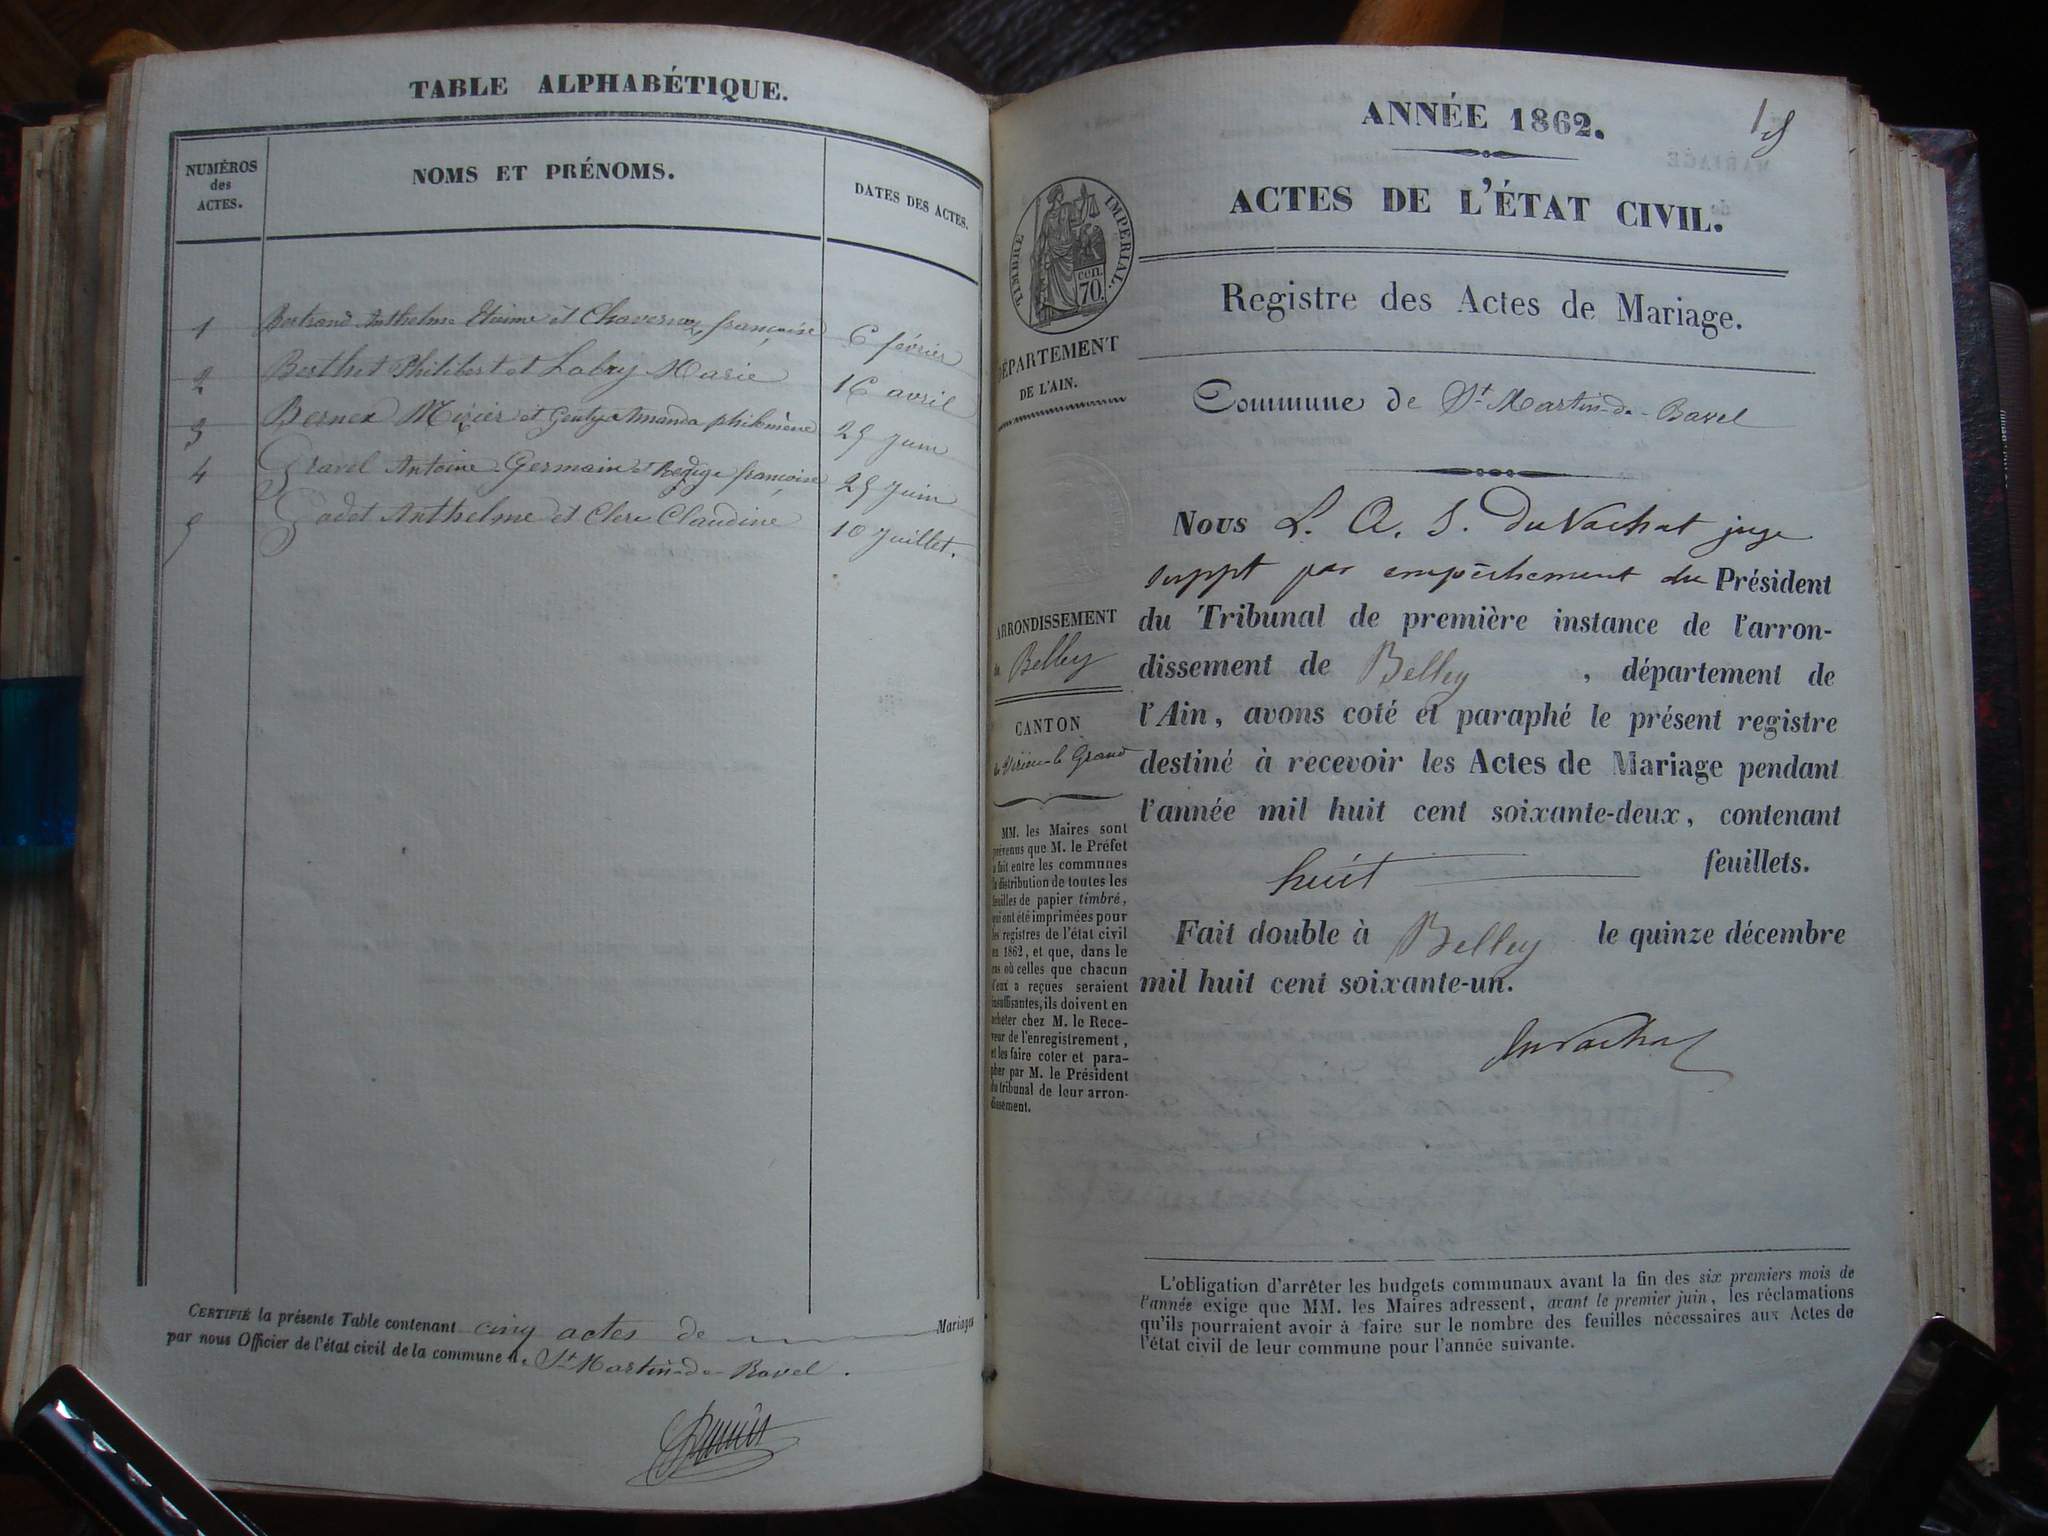 TABLE ALPHABÉTIQUE.
NUMÉROS
des
ACTES.
NOMS ET PRÉNOMS.
DATES DES ACTES.
1 Bertrand Anthelme Etienne et Chavernoz françoise 6 février
2 Berthet Philibert et Labry Marie 16 avril
3 Bernex et Amanda philomène 25 juin
4 Gravel Antoine Germain et françoise 25 juin
5 Godet Anthelme et Clerc Claudine 10 juillet.
CERTIFIÉ la présente Table contenant cinq actes de Mariages
par nous Officier de l'état civil de la commune de St Martin-de-Bavel.
ANNÉE 1862.
ACTES DE L'ÉTAT CIVIL.
TIMBRE IMPÉRIAL.
cen.
70.
DÉPARTEMENT
DE L'AIN.
Registre des Actes de Mariage.
Commune de St Martin-de-Bavel
ARRONDISSEMENT
de Belley
CANTON
de Virieu-le-Grand
MM. les Maires sont
prévenus que M. le Préfet
a fait entre les communes
la distribution de toutes les
feuilles de papier timbré,
qui ont été imprimées pour
les registres de l'état civil
en 1862, et que, dans le
cas où celles que chacun
d'eux a reçues seraient
insuffisantes, ils doivent en
acheter chez M. le Rece-
veur de l'enregistrement,
et les faire coter et para-
pher par M. le Président
du tribunal de leur arron-
dissement.
Nous L. A. S. du Vachat juge
suppt par empêchement du Président
du Tribunal de première instance de l'arron-
dissement de Belley, département de
l'Ain, avons coté et paraphé le présent registre
destiné à recevoir les Actes de Mariage pendant
l'année mil huit cent soixante-deux, contenant
huit feuillets.
Fait double à Belley le quinze décembre
mil huit cent soixante-un.
du Vachat
L'obligation d'arrêter les budgets communaux avant la fin des six premiers mois de
l'année exige que MM. les Maires adressent, avant le premier juin, les réclamations
qu'ils pourraient avoir à faire sur le nombre des feuilles nécessaires aux Actes de
l'état civil de leur commune pour l'année suivante.